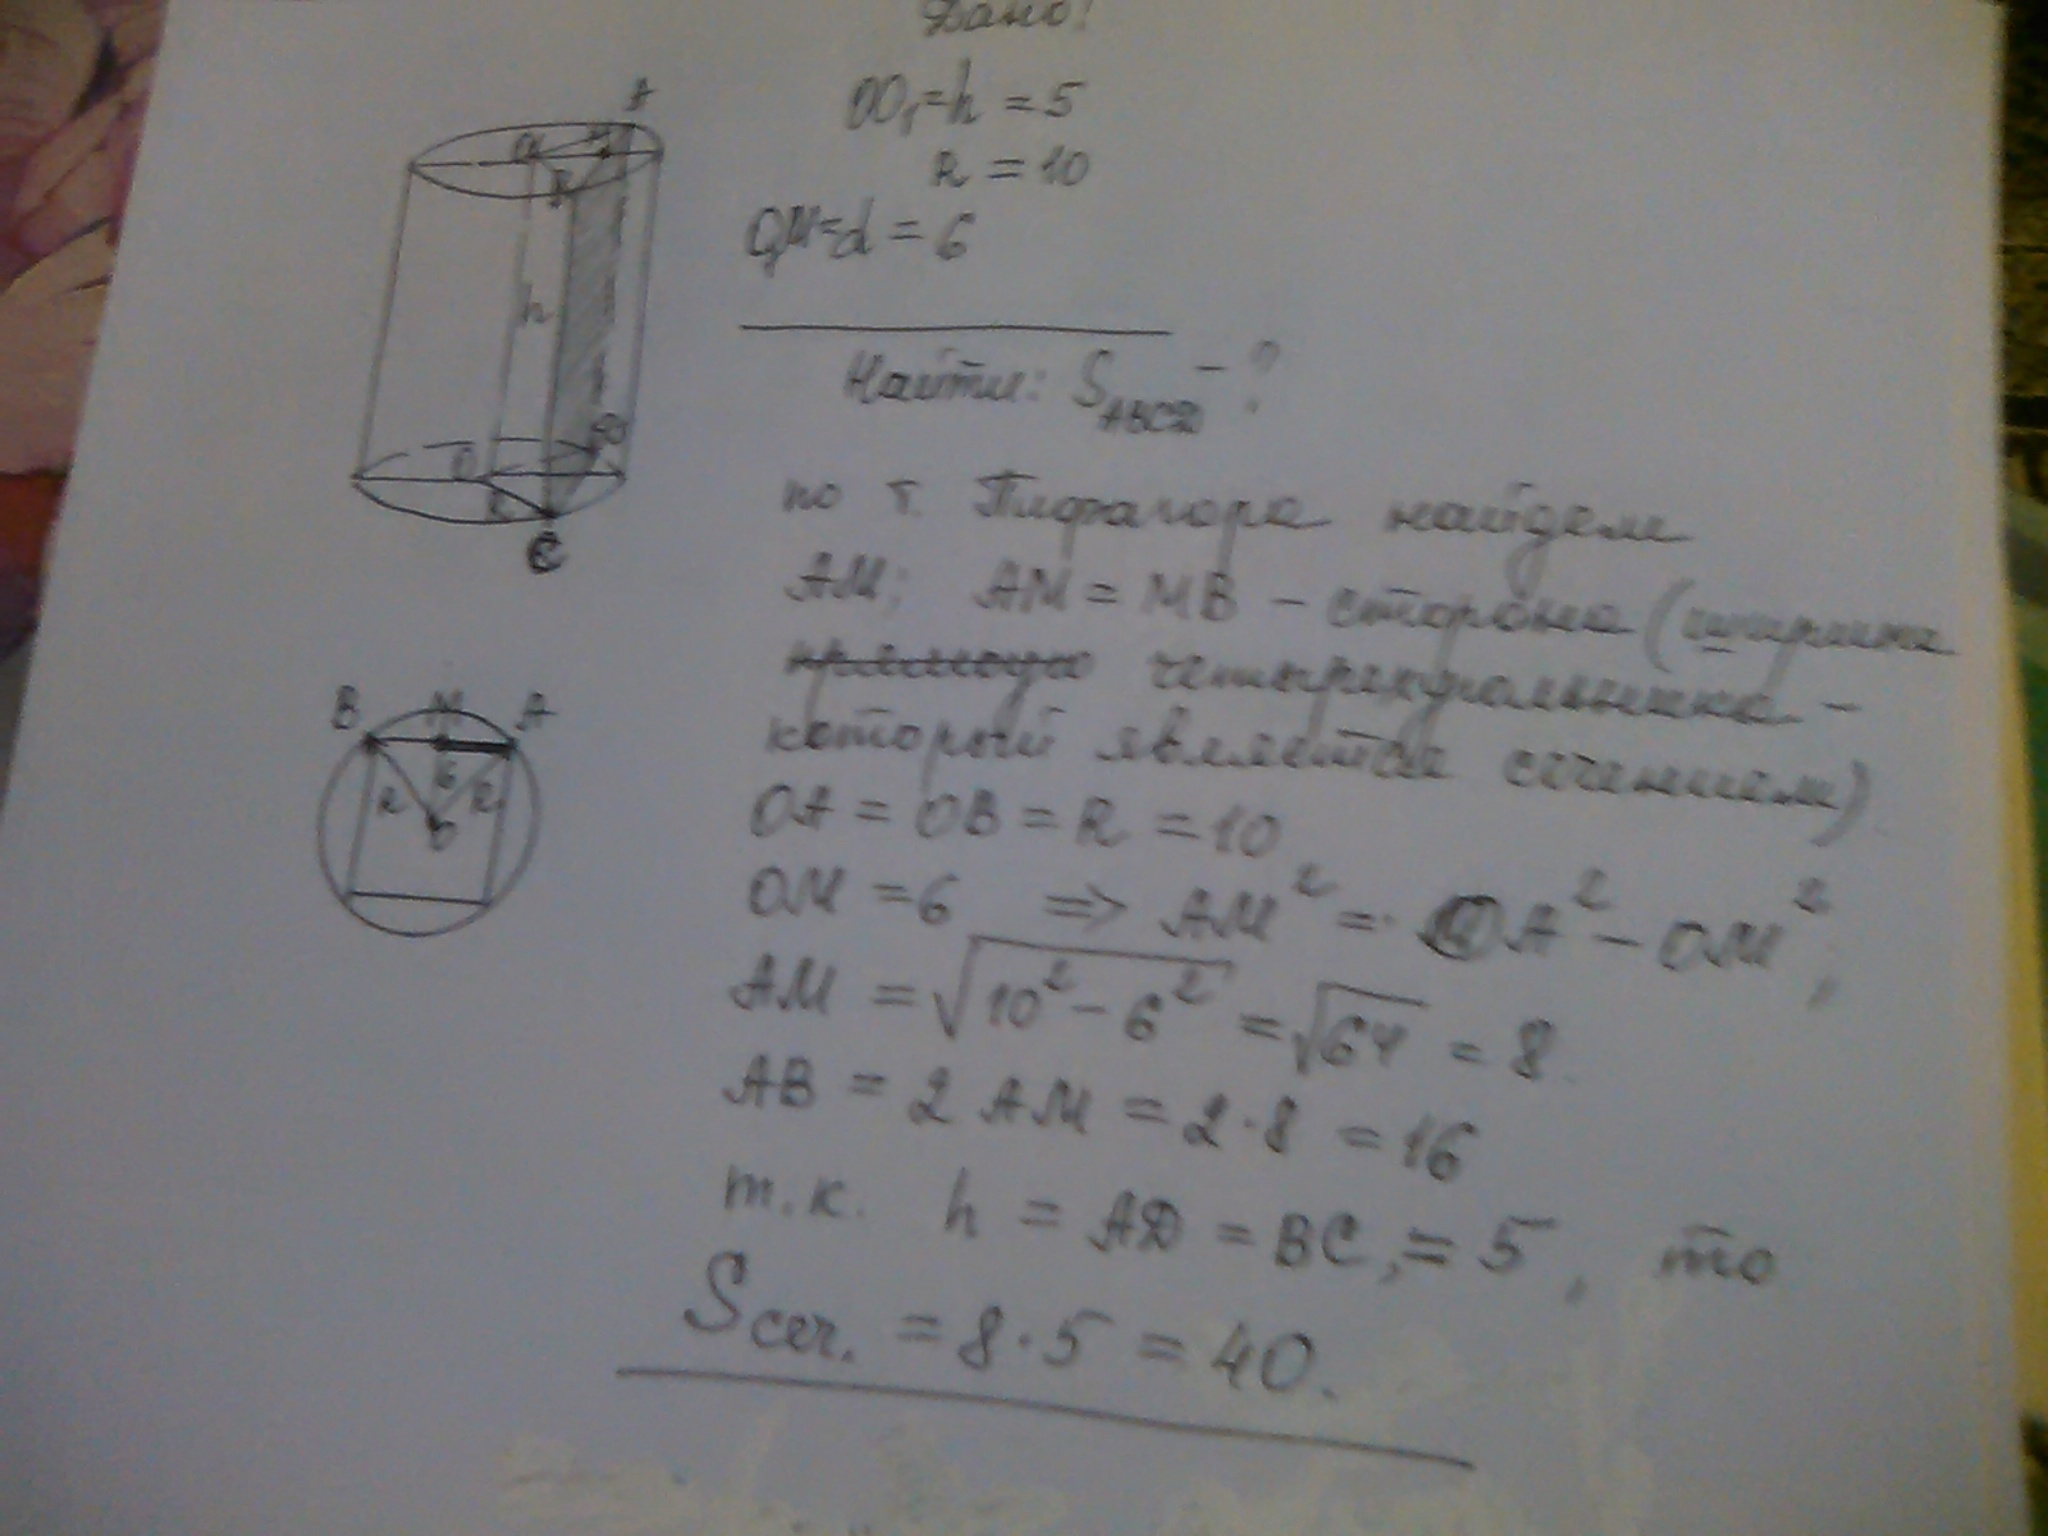 Дано:
OO₁=h = 5
R = 10
O₁M=d = 6
Найти: S_ABCD - ?
по т. Пифагора найдем
AM; AM = MB - сторона (ширина
четырехугольника -
который является сечением)
OA = OB = R = 10
OM = 6 => AM² = OA² - OM²,
AM = √(10² - 6²) = √64 = 8.
AB = 2 AM = 2·8 = 16
т.к. h = AD = BC, = 5, то
Sсеч. = 8·5 = 40.
A
O₁
M
B
h
O
D
R
C
B
M
A
R
6
R
O